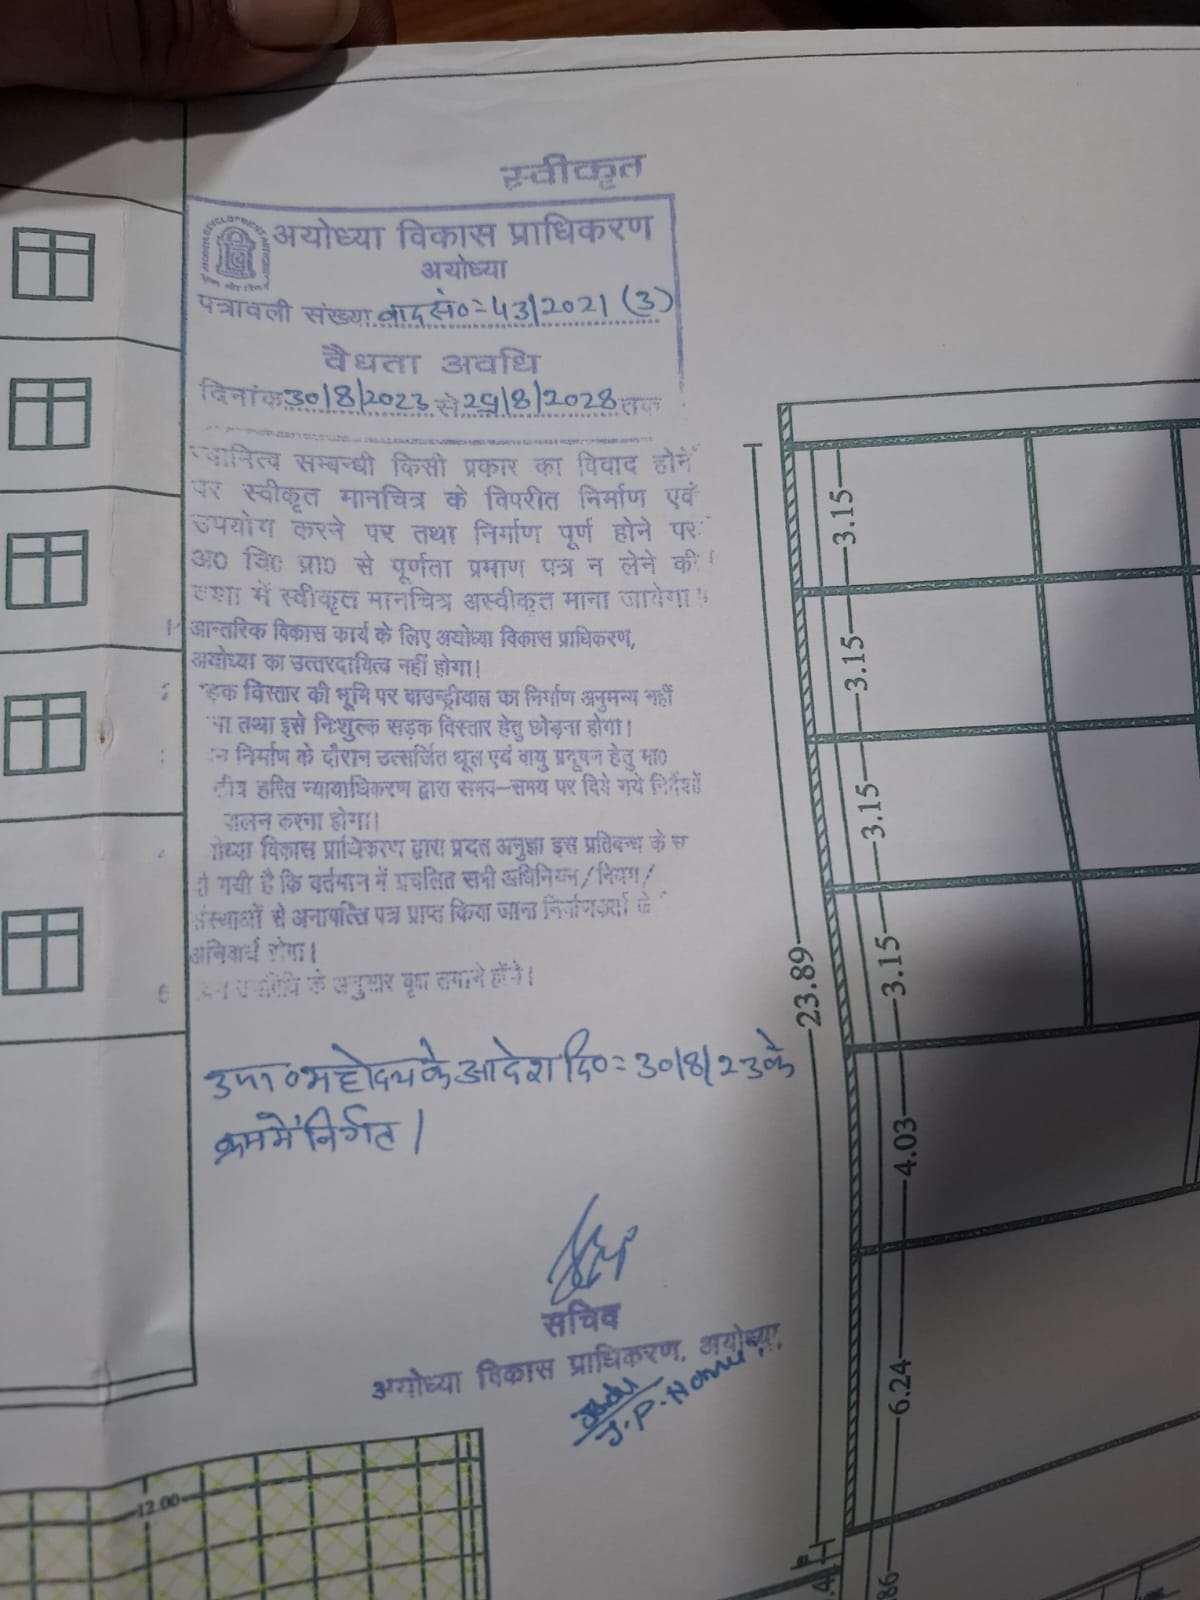 स्वीकृत
अयोध्या विकास प्राधिकरण
अयोध्या
पत्रावली संख्या वाद सं०=43/2021 (3)
वैधता अवधि
दिनांक 30/8/2023 से 29/8/2028 तक
सम्बन्धी किसी प्रकार का विवाद होने
पर स्वीकृत मानचित्र के विपरीत निर्माण एवं
उपयोग करने पर तथा निर्माण पूर्ण होने पर
अ० वि० प्रा० से पूर्णता प्रमाण पत्र न लेने की
दशा में स्वीकृत मानचित्र अस्वीकृत माना जायेगा।
आन्तरिक विकास कार्य के लिए अयोध्या विकास प्राधिकरण,
अयोध्या का उत्तरदायित्व नहीं होगा।
2 ड़क विस्तार की भूमि पर बाउन्ड्रीवाल का निर्माण अनुमन्य नहीं
तथा इसे निःशुल्क सड़क विस्तार हेतु छोड़ना होगा।
निर्माण के दौरान उत्सर्जित धूल एवं वायु प्रदूषन हेतु मा०
हरित न्यायाधिकरण द्वारा समय-समय पर दिये गये निर्देशों
करना होगा।
विकास प्राधिकरण द्वारा प्रदत अनुज्ञा इस प्रतिबन्ध के
गयी है कि वर्तमान में प्रचलित सभी अधिनियम/नियम/
से अनापत्ति पत्र प्राप्त किया जाना निर्माणकर्ता
अनिवार्य होगा।
6 के अनुसार वृक्ष लगाने होंगे।
उपा० महोदय के आदेश दि०=30/8/23 के
क्रम में निर्गत।
सचिव
अयोध्या विकास प्राधिकरण, अयोध्या
J.P.
3.15
3.15
3.15
3.15
4.03
6.24
23.89
12.00